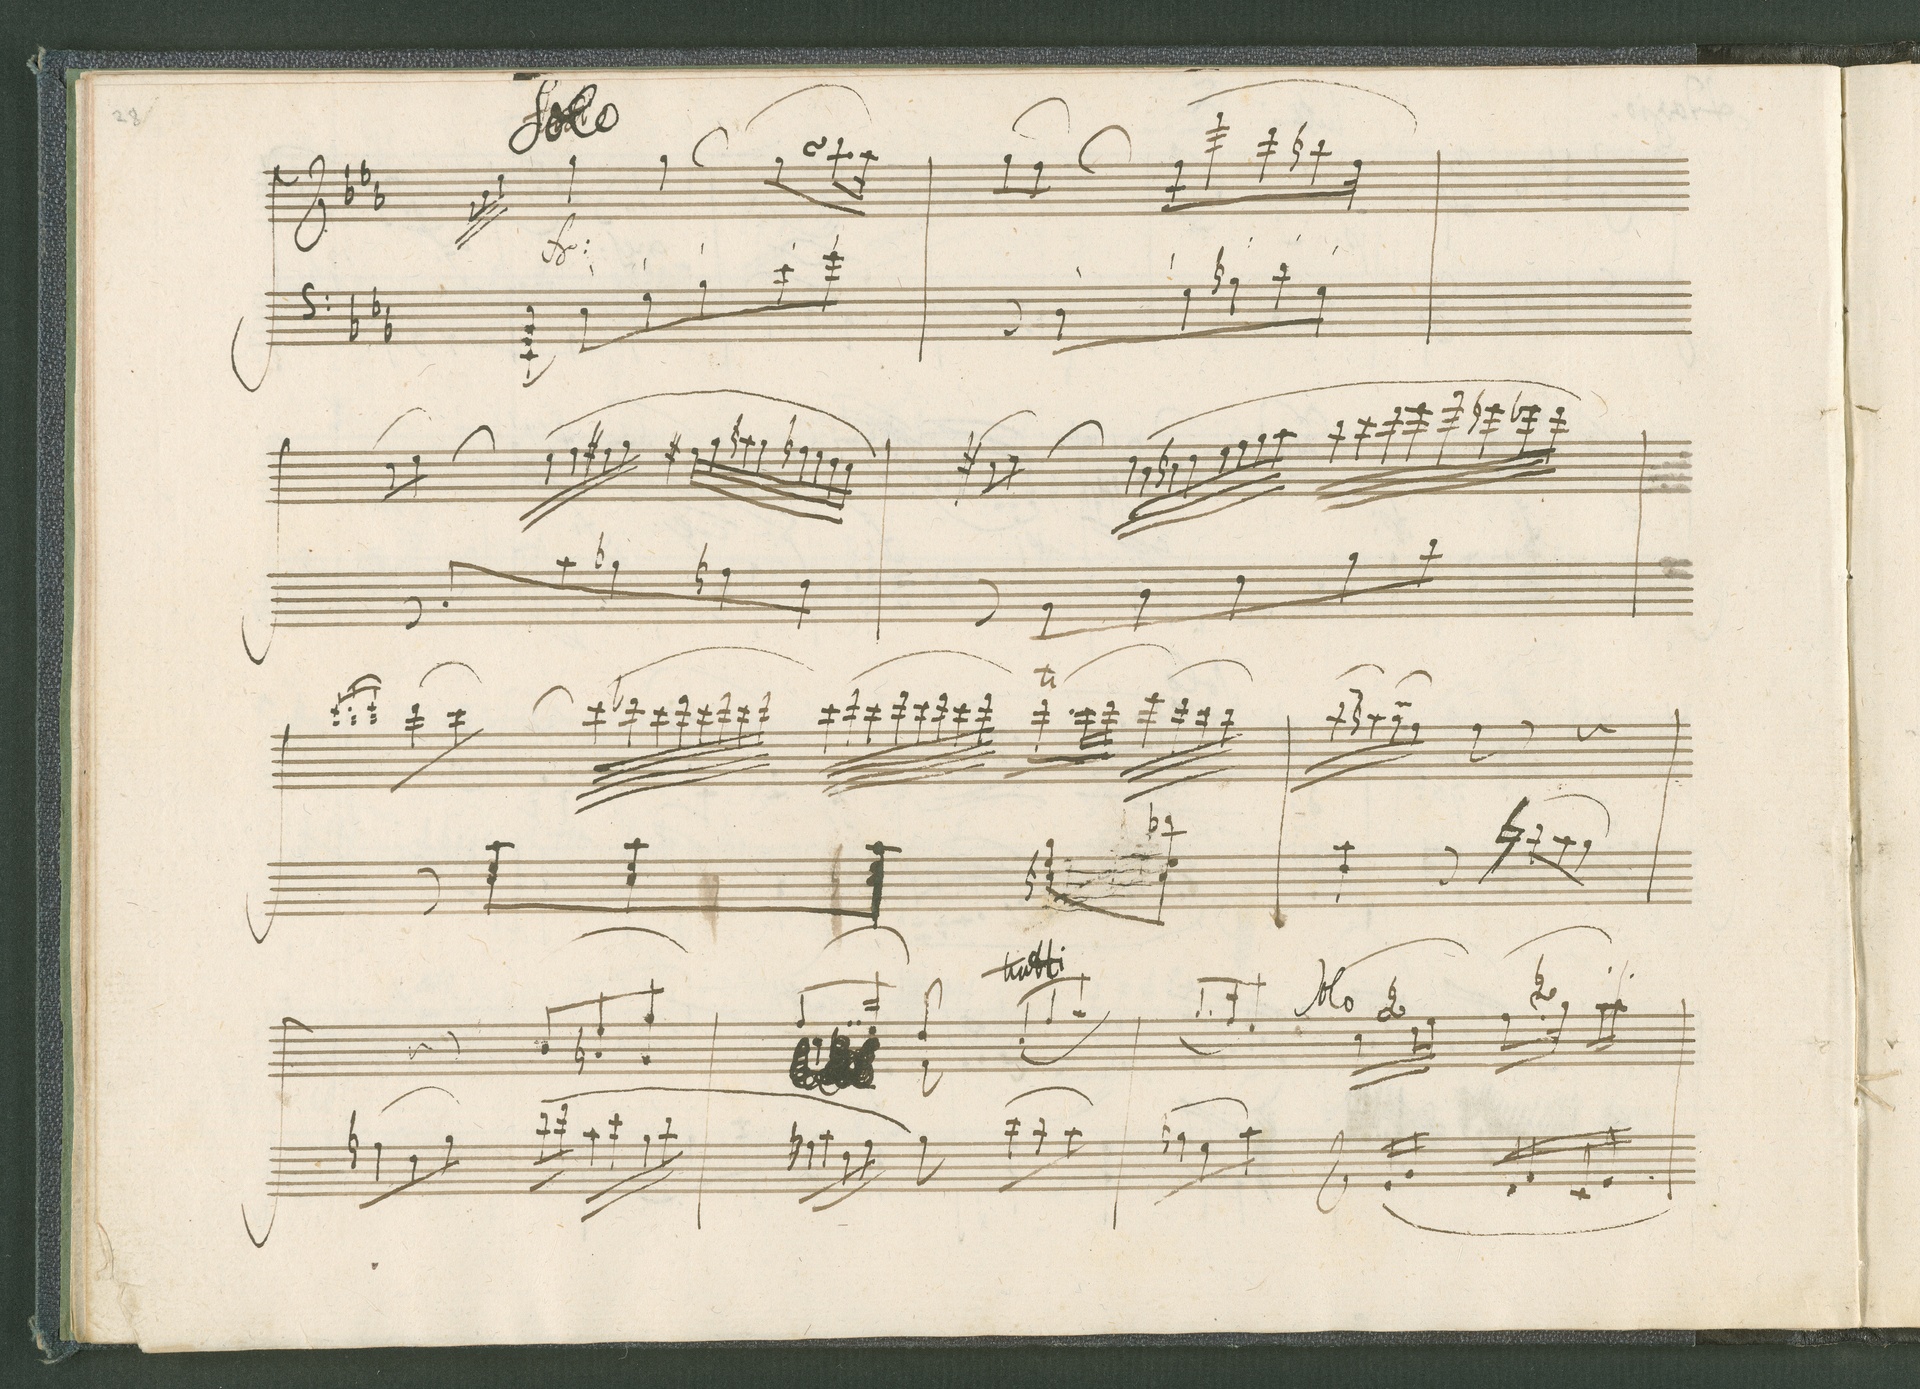 28
Solo
tr
tutti
Solo